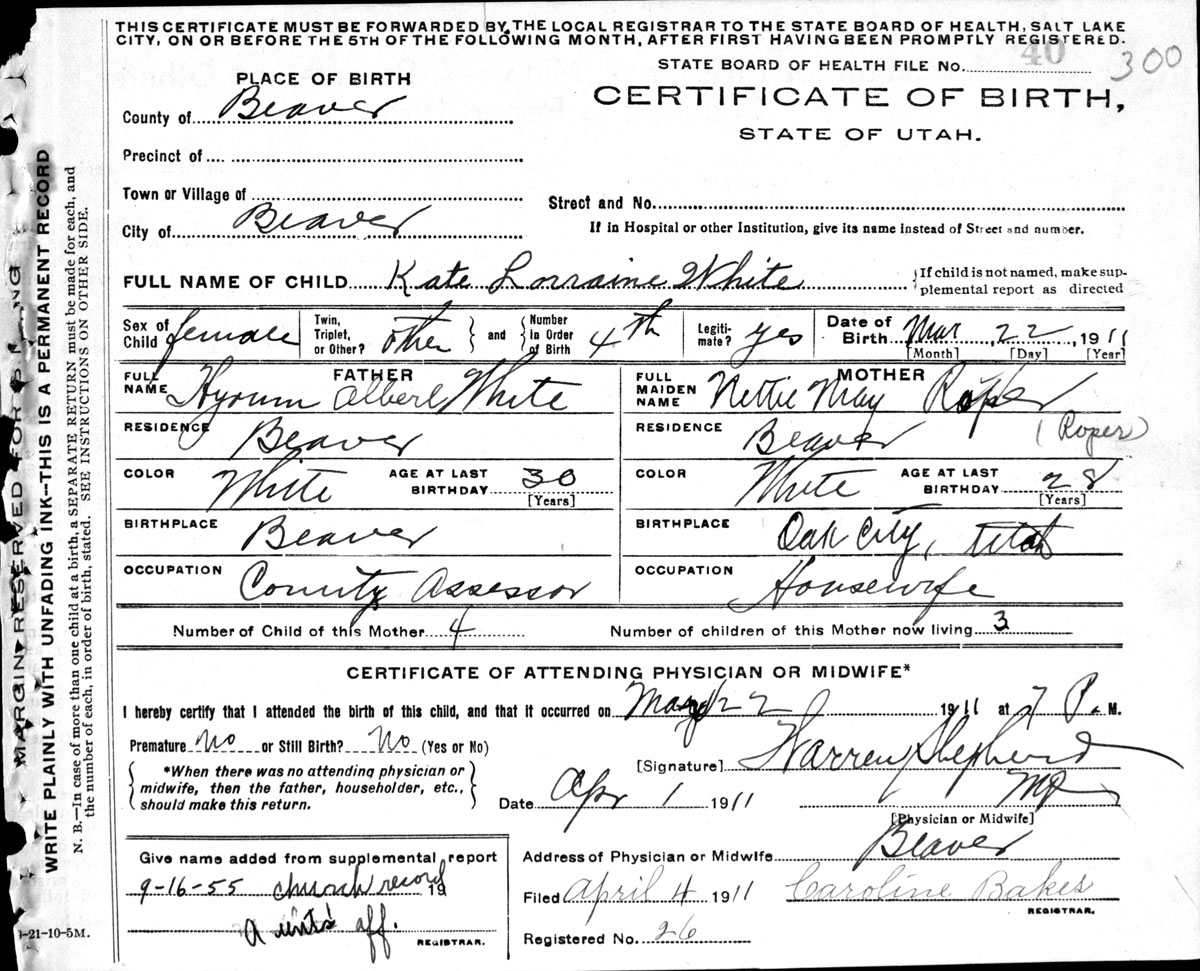 THIS CERTIFICATE MUST BE FORWARDED BY THE LOCAL REGISTRAR TO THE STATE BOARD OF HEALTH, SALT LAKE
CITY, ON OR BEFORE THE 5TH OF THE FOLLOWING MONTH, AFTER FIRST HAVING BEEN PROMPTLY REGISTERED.
STATE BOARD OF HEALTH FILE No. 40 300
PLACE OF BIRTH
CERTIFICATE OF BIRTH,
STATE OF UTAH.
County of Beaver
Precinct of
Town or Village of
Street and No.
City of Beaver
If in Hospital or other Institution, give its name instead of Street and number.
FULL NAME OF CHILD Kate Lorraine White
{If child is not named, make sup-
plemental report as directed
Sex of Child female Twin, Triplet, or Other? other } and {Number In Order of Birth 4th Legiti-mate? yes Date of Birth Mar 22, 1911
[Month] [Day] [Year]
FATHER
FULL NAME Hyrum Albert White
MOTHER
FULL MAIDEN NAME Nettie May Roper
RESIDENCE Beaver
RESIDENCE Beaver (Roper)
COLOR White AGE AT LAST BIRTHDAY 30 [Years]
COLOR White AGE AT LAST BIRTHDAY 28 [Years]
BIRTHPLACE Beaver
BIRTHPLACE Oak City, Utah
OCCUPATION County Assessor
OCCUPATION Housewife
Number of Child of this Mother 4 Number of children of this Mother now living 3
CERTIFICATE OF ATTENDING PHYSICIAN OR MIDWIFE*
I hereby certify that I attended the birth of this child, and that it occurred on Mar 22 1911 at 7 P. M.
Premature No or Still Birth? No (Yes or No)
{*When there was no attending physician or
midwife, then the father, householder, etc.,
should make this return.}
[Signature] Warren Shepherd
Date Apr 1 1911 MD
[Physician or Midwife]
Address of Physician or Midwife Beaver
Give name added from supplemental report
9-16-55 church record 19
Aunts' aff.
REGISTRAR.
Filed April 4 1911 Caroline Bakes
REGISTRAR.
Registered No. 26
-21-10-5M.
MARGIN RESERVED FOR
WRITE PLAINLY WITH UNFADING INK--THIS IS A PERMANENT RECORD
N. B.—In case of more than one child at a birth, a SEPARATE RETURN must be made for each, and
the number of each, in order of birth, stated. SEE INSTRUCTIONS ON OTHER SIDE.